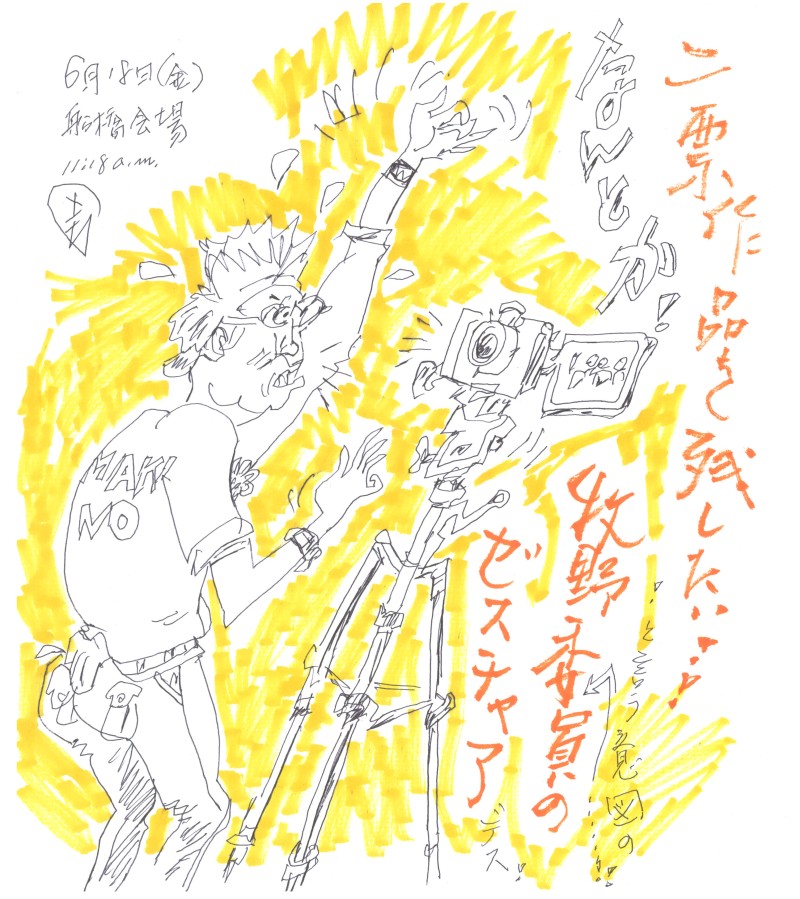 6月18日(金)
船橋会場
11:18 a.m.
なんとか!
二票作品を残したい…!
…という意図の
牧野委員の
ゼスチャア
デス!
MAKI
NO